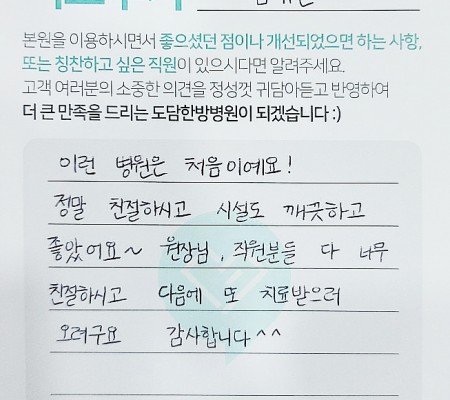 본원을 이용하시면서 좋으셨던 점이나 개선되었으면 하는 사항,
또는 칭찬하고 싶은 직원이 있으시다면 알려주세요.
고객 여러분의 소중한 의견을 정성껏 귀담아듣고 반영하여
더 큰 만족을 드리는 도담한방병원이 되겠습니다 :)
이런 병원은 처음이예요!
정말 친절하시고 시설도 깨끗하고
좋았어요~ 원장님, 직원분들 다 너무
친절하시고 다음에 또 치료받으러
오려구요 감사합니다^^